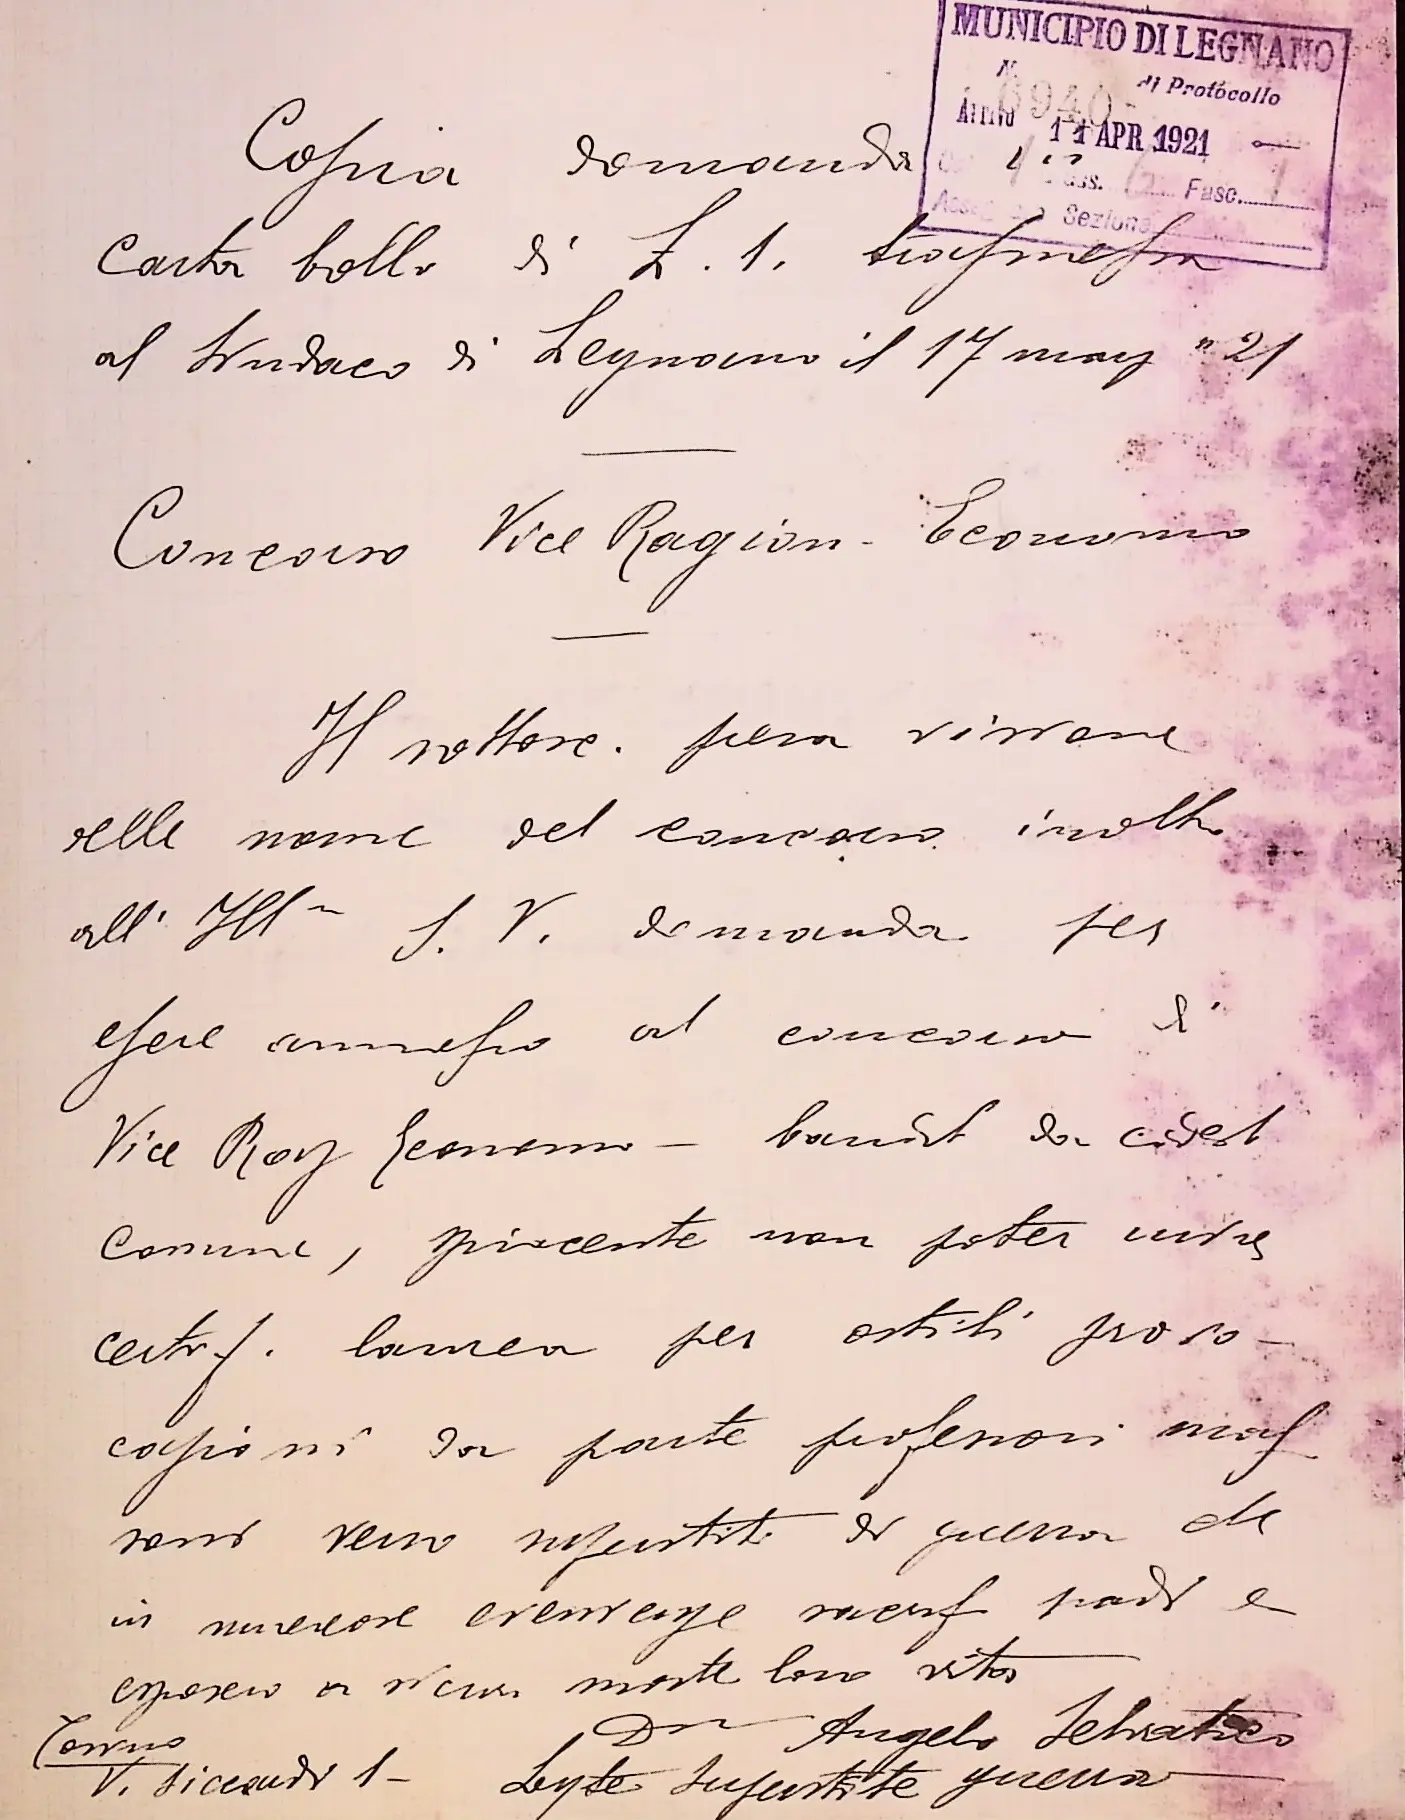 MUNICIPIO DI LEGNANO
N. 6940 di Protocollo
Arrivo 11 APR 1921
Fasc. 1
Sezione
Copia domanda
carta bollo di L. 1. trasmessa
al Sindaco di Legnano il 17 marz " 21
Concorso Vice Ragion- Economo
Il sottosc. presa visione
delle norme del concorso inoltra
all' Ill S. V. domanda per
essere ammesso al concorso di
Vice Rag Economo - bandit da codest
comune, spiacente non poter unire
certif. laurea per ostili provo-
cazioni da parte professori mas
soni verso mutilati di guerra che
in numerose evenienze padri e
esposero a sicura morte loro vita
Dr Angelo Selvatico
Torino
V. Siccardi 1-
guerra